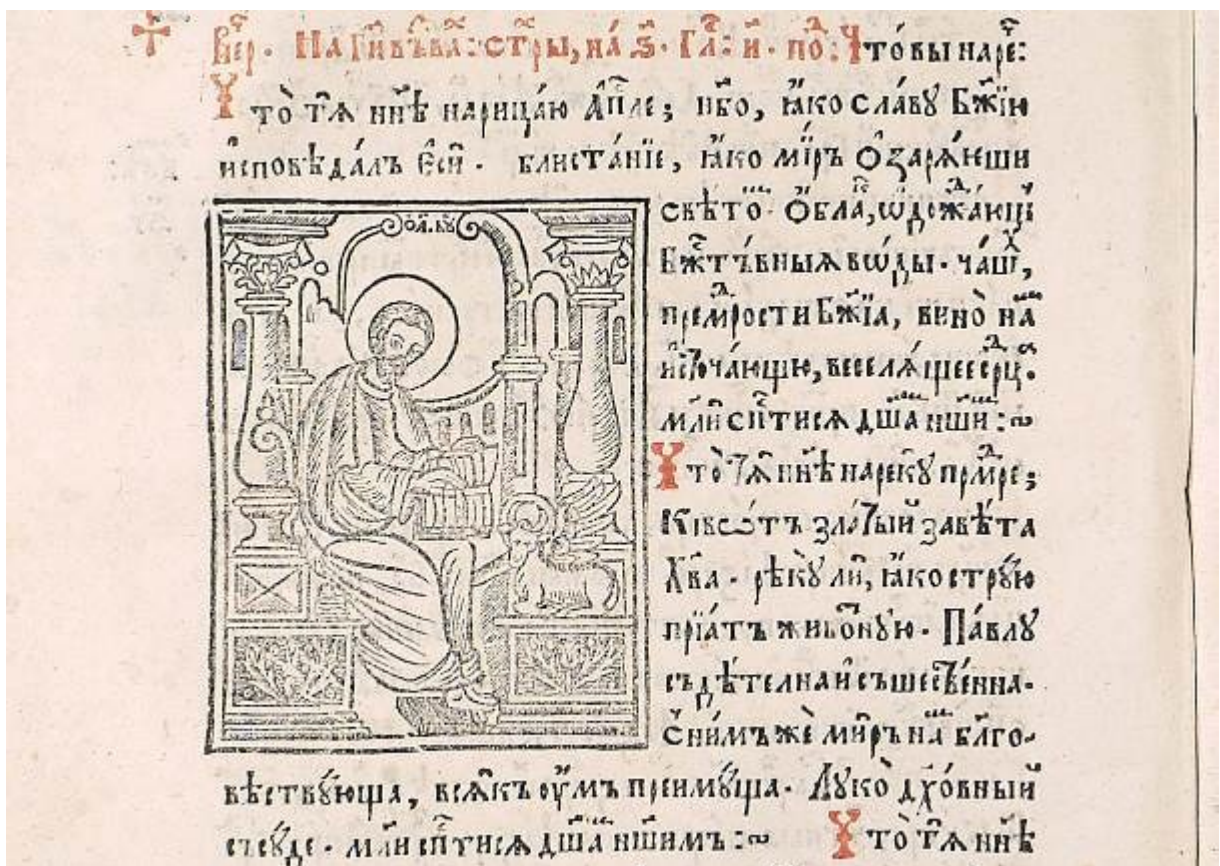 Вече҇р. На Гй҇ въ́ва: стр҇ы, на́ ѕ҃. Гла҇: и҃. по҇д: Что́ вы наре҇:
Что̀ тѧ̀ нн҃ѣ нарица́ю а҆пл҇е; нб҃о, ꙗ҆́ко сла́вꙋ бж҃їю
и҆сповѣ́далъ є҆сѝ. блиста́нїе, ꙗ҆́ко мі́ръ ѡ҆зарѧ́ющи
свѣ́то. ѻ҆́бла, ѡ҆дож҇а́ющи
бж҇т꙽вныѧ во́ды. ча́ш,
премр҇ости бж҃їѧ, вино̀ на́м
и҆сточа́ющꙋю, веселѧ́щее срц҇.
мл҃и сп҃тисѧ дш҃а нши:~
Что̀ тѧ̀ нн҃ѣ нарекꙋ̀ прмр҇е;
Кївѡ́тъ зла́тый завѣ́та
хв҃а. рѣкꙋ́ ли, ꙗ҆́ко стрꙋю
прїѧ́тъ живо҇нꙋю. Па́влꙋ
съдѣ́телна и съшес҇твенна.
с҇ ни́мъ жѐ ми́ръ на́м бл҃го-
вѣствꙋ́юща, всѧ́къ ᲂу҆́мъ преимꙋ́ща. Лꙋко̀ дх҃о́вный
съсꙋ́де. мл҃и сп҃тисѧ дш҃а́м н҃шимъ:~ Что̀ тѧ̀ нн҃ѣ